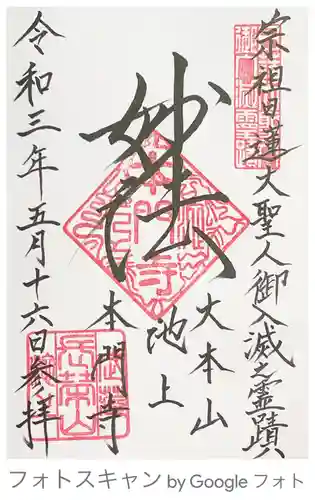 宗祖日蓮大聖人御入滅之霊蹟
妙法
大本山
池上
本門寺
令和三年五月十六日参拝
フォトスキャン by Google フォト